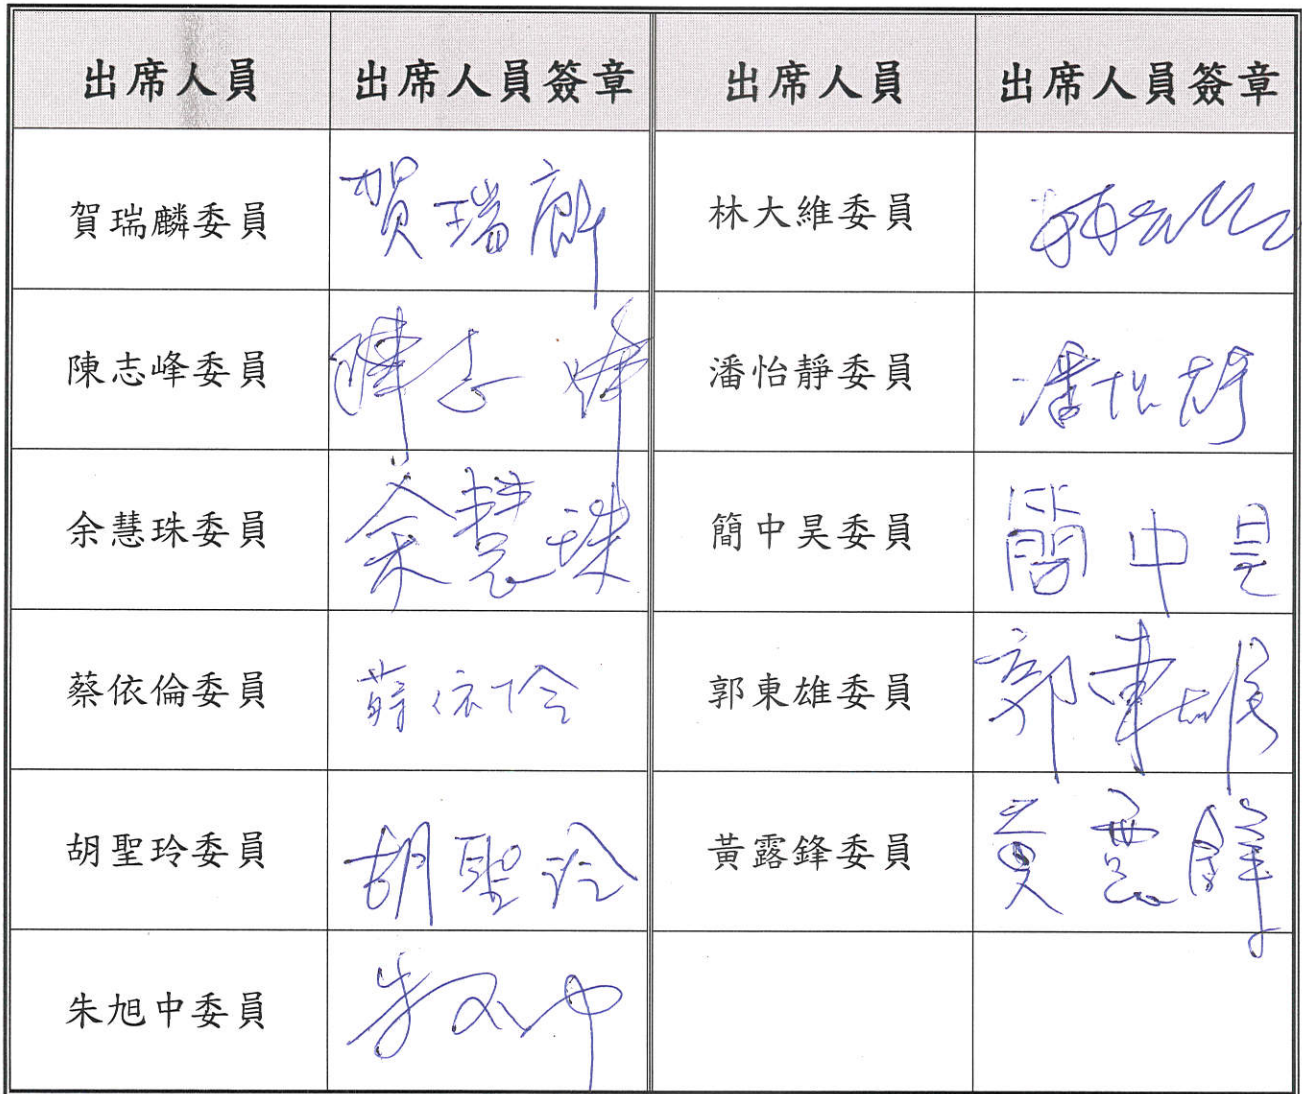 出席人員 出席人員簽章 出席人員 出席人員簽章
賀瑞麟委員 賀瑞麟 林大維委員 林大維
陳志峰委員 陳志峰 潘怡靜委員 潘怡靜
余慧珠委員 余慧珠 簡中昊委員 簡中昊
蔡依倫委員 蔡依倫 郭東雄委員 郭東雄
胡聖玲委員 胡聖玲 黃露鋒委員 黃露鋒
朱旭中委員 朱旭中